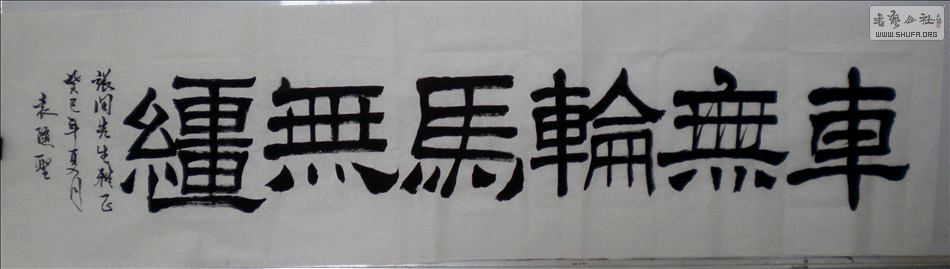 車無輪馬無繮
張闻先生雅正
癸巳年夏月
袁匯聖
書藝公社
WWW.SHUFA.ORG